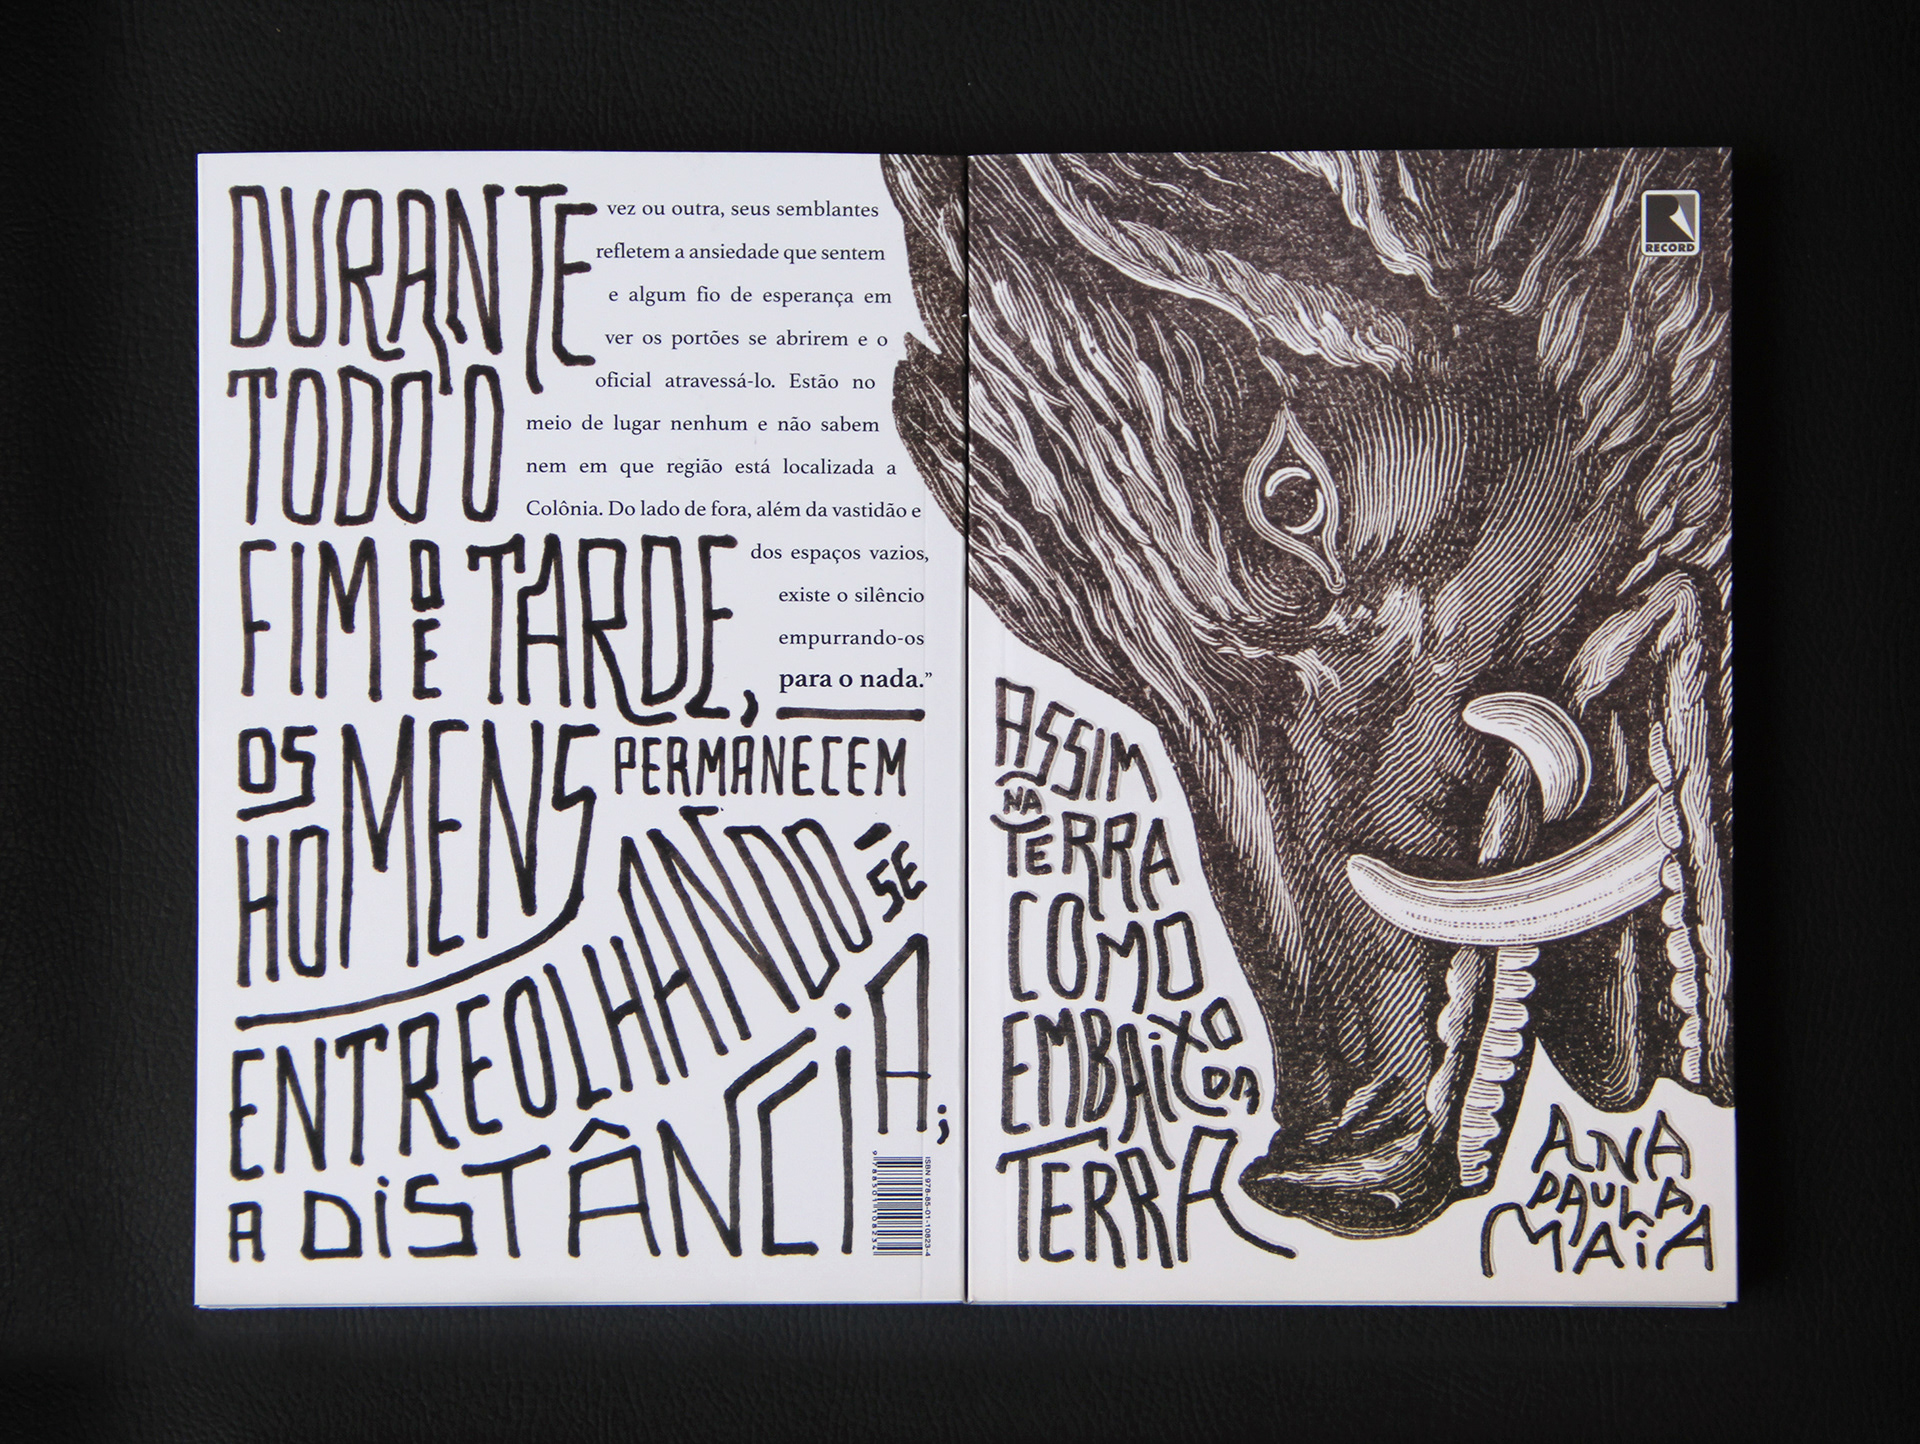 DURANTE
TODO O
FIM DE TARDE,
OS
HOMENS
PERMANECEM
ENTREOLHANDO-SE
A DiSTÂNCiA,
vez ou outra, seus semblantes
refletem a ansiedade que sentem
e algum fio de esperança em
ver os portões se abrirem e o
oficial atravessá-lo. Estão no
meio de lugar nenhum e não sabem
nem em que região está localizada a
Colônia. Do lado de fora, além da vastidão e
dos espaços vazios,
existe o silêncio
empurrando-os
para o nada.”
ISBN 978-85-01-10823-4
9788501108234
RECORD
ASSIM
NA
TERRA
COMO
EMBAiXO
DA
TERRA
ANA
PAULA
MAiA